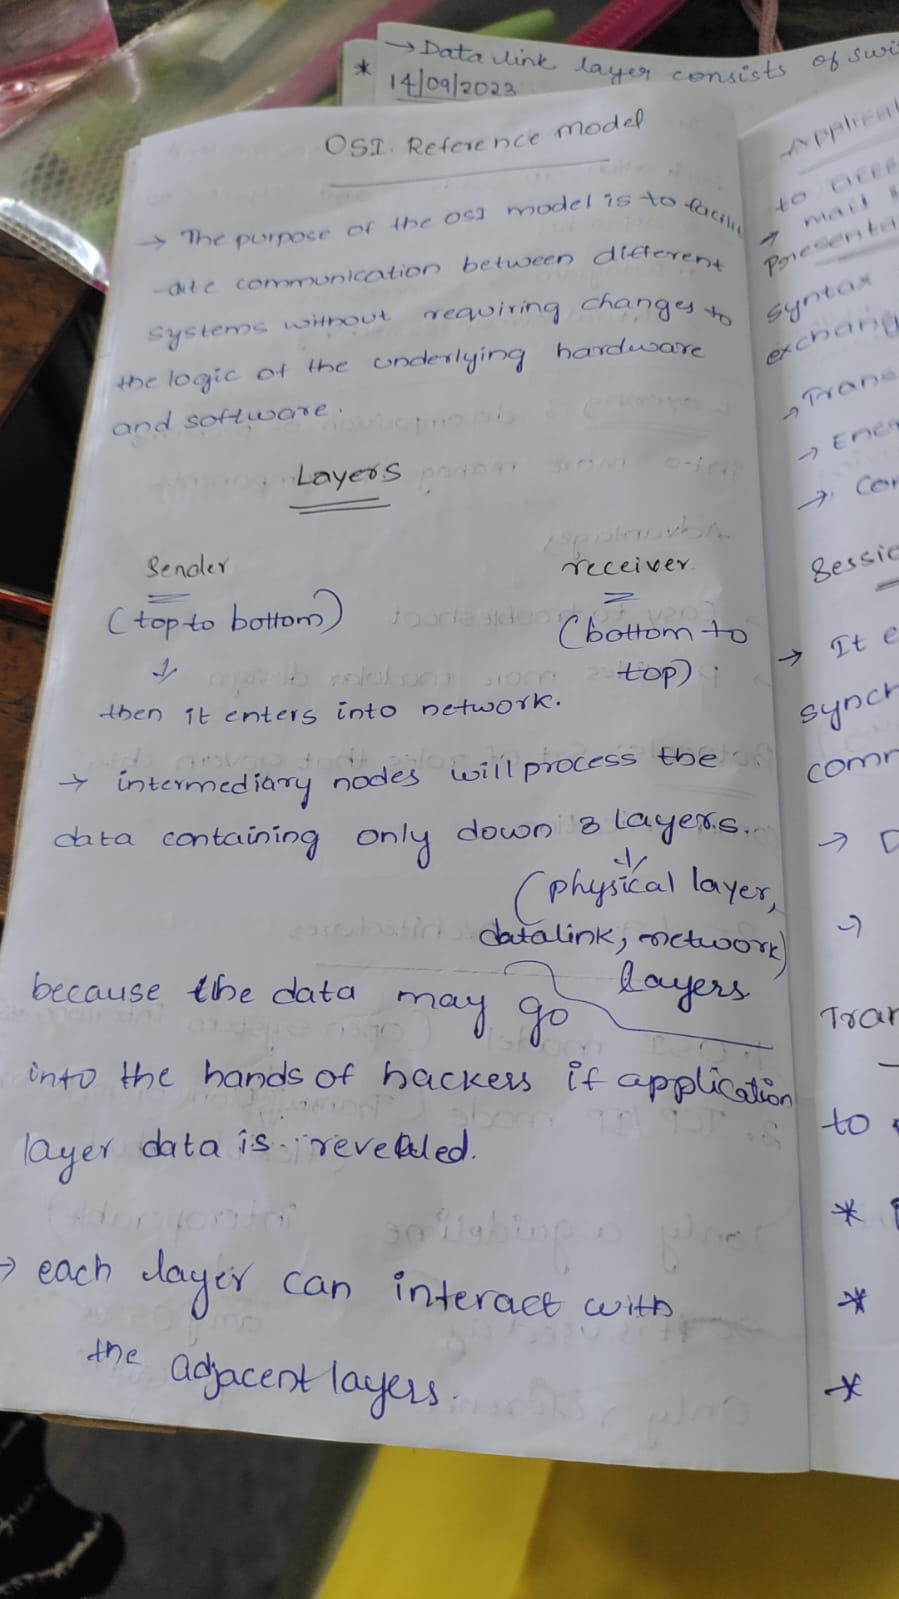 → Data link layer consists of
* 14/09/2023
OSI Reference Model
→ The purpose of the OSI model is to facilit
-ate communication between different
systems without requiring changes to
the logic of the underlying hardware
and software.
Layers
Sender receiver
(top to bottom) (bottom to
top)
then it enters into network.
→ intermediary nodes will process the
data containing only down 3 layers.
(physical layer,
datalink, network)
layers
because the data may go
into the hands of hackers if application
layer data is revealed.
→ each layer can interact with
the adjacent layers.
to
→ mail
syntax
→ Trans
→
→
→ It
→
→
to
*
*
*